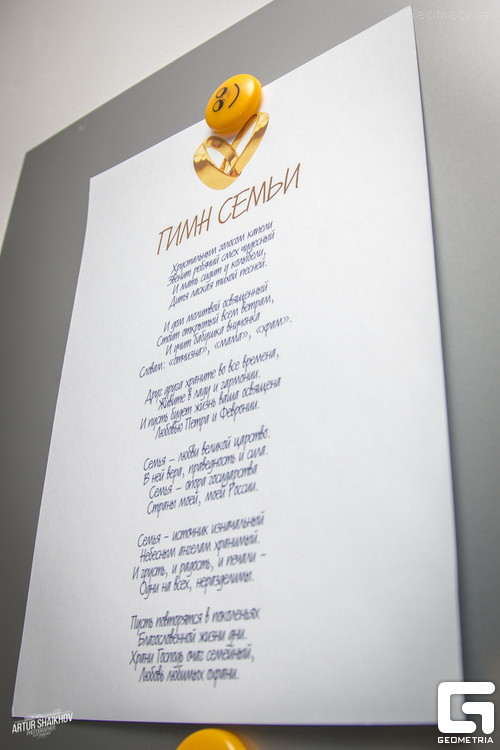 ГИМН СЕМЬИ
Хрустальным голосом капели
Звенит ребячий смех чудесный
И мать сидит у колыбели,
Дитя лаская тихой песней.
И дом молитвой освященный
Стоит открытый всем ветрам,
И учит бабушка внучонка
Словам: «отчизна», «мама», «храм».
Друг друга храните во все времена,
Живите в ладу и гармонии.
И пусть будет жизнь ваша освящена
Любовью Петра и Февронии.
Семья – любви великой царство.
В ней вера, праведность и сила.
Семья – опора государства
Страны моей, моей России.
Семья – источник изначальный
Небесным ангелам хранимый.
И грусть, и радость, и печали –
Одни на всех, неразделимы.
Пусть повторятся в поколеньях
Благословенной жизни дни.
Храни Господь очаг семейный,
Любовь любимых охрани.
ARTUR SHAIKHOV
PHOTOGRAPHER
GEOMETRIA